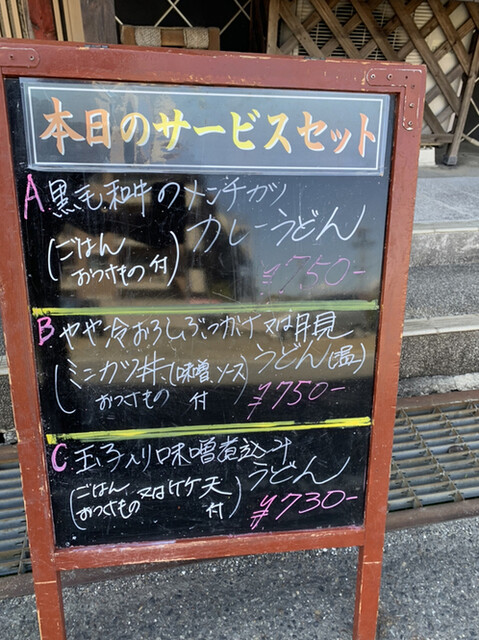 本日のサービスセット
A 黒毛和牛のメンチカツ
カレーうどん
(ごはん
おつけもの 付)
¥750-
B やや冷おろしぶっかけ 又は月見
うどん(温)
(ミニカツ丼、(味噌、ソース)
おつけもの 付
¥750-
C 玉子入り味噌煮込み
うどん
(ごはん、又はゲソ天
おつけもの 付)
¥730-